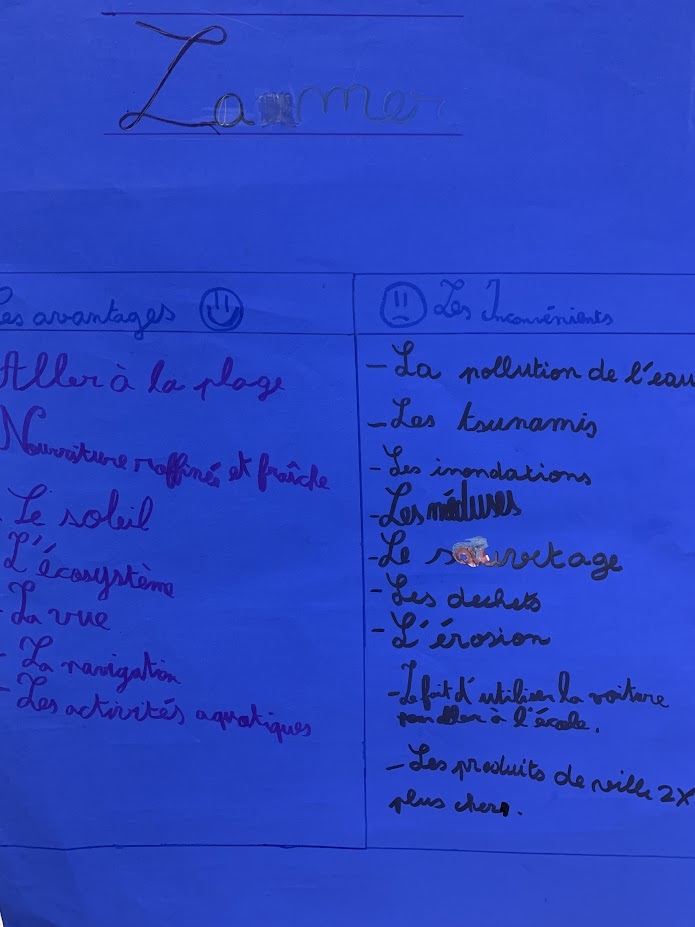 La mer
Les avantages
Aller à la plage
Nourriture raffinée et fraîche
- Le soleil
L'écosystème
- La vue
- La navigation
- Les activités aquatiques
Les Inconvénients
- La pollution de l'eau
- Les tsunamis
- Les inondations
- Les méduses
- Le sauvetage
- Les dechets
- L'érosion
- Le fait d'utiliser la voiture
pour aller à l'école.
- Les produits de ville 2X
plus chers.